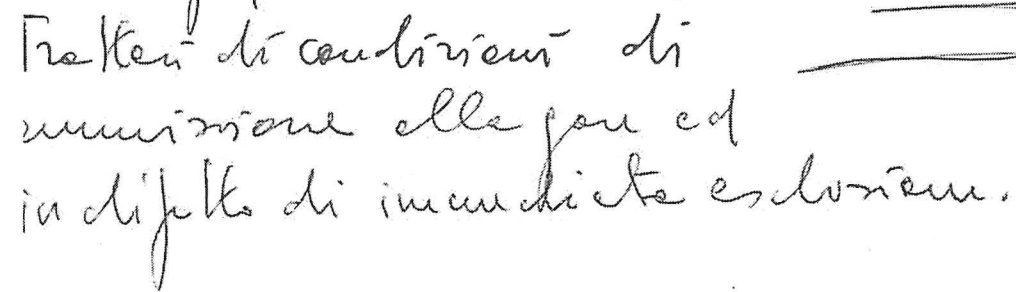 Trattasi di condizioni di
ammissione alla gara ed
in difetto di immediata esclusione.